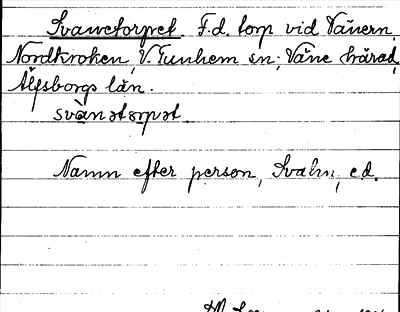 Svanetorpet. F.d. torp vid Vänern,
Nordkroken, V. Tunhem sn; Väne härad,
Älfsborgs län.
svànətɔrpət.
Namn efter person, Svahn, e.d.